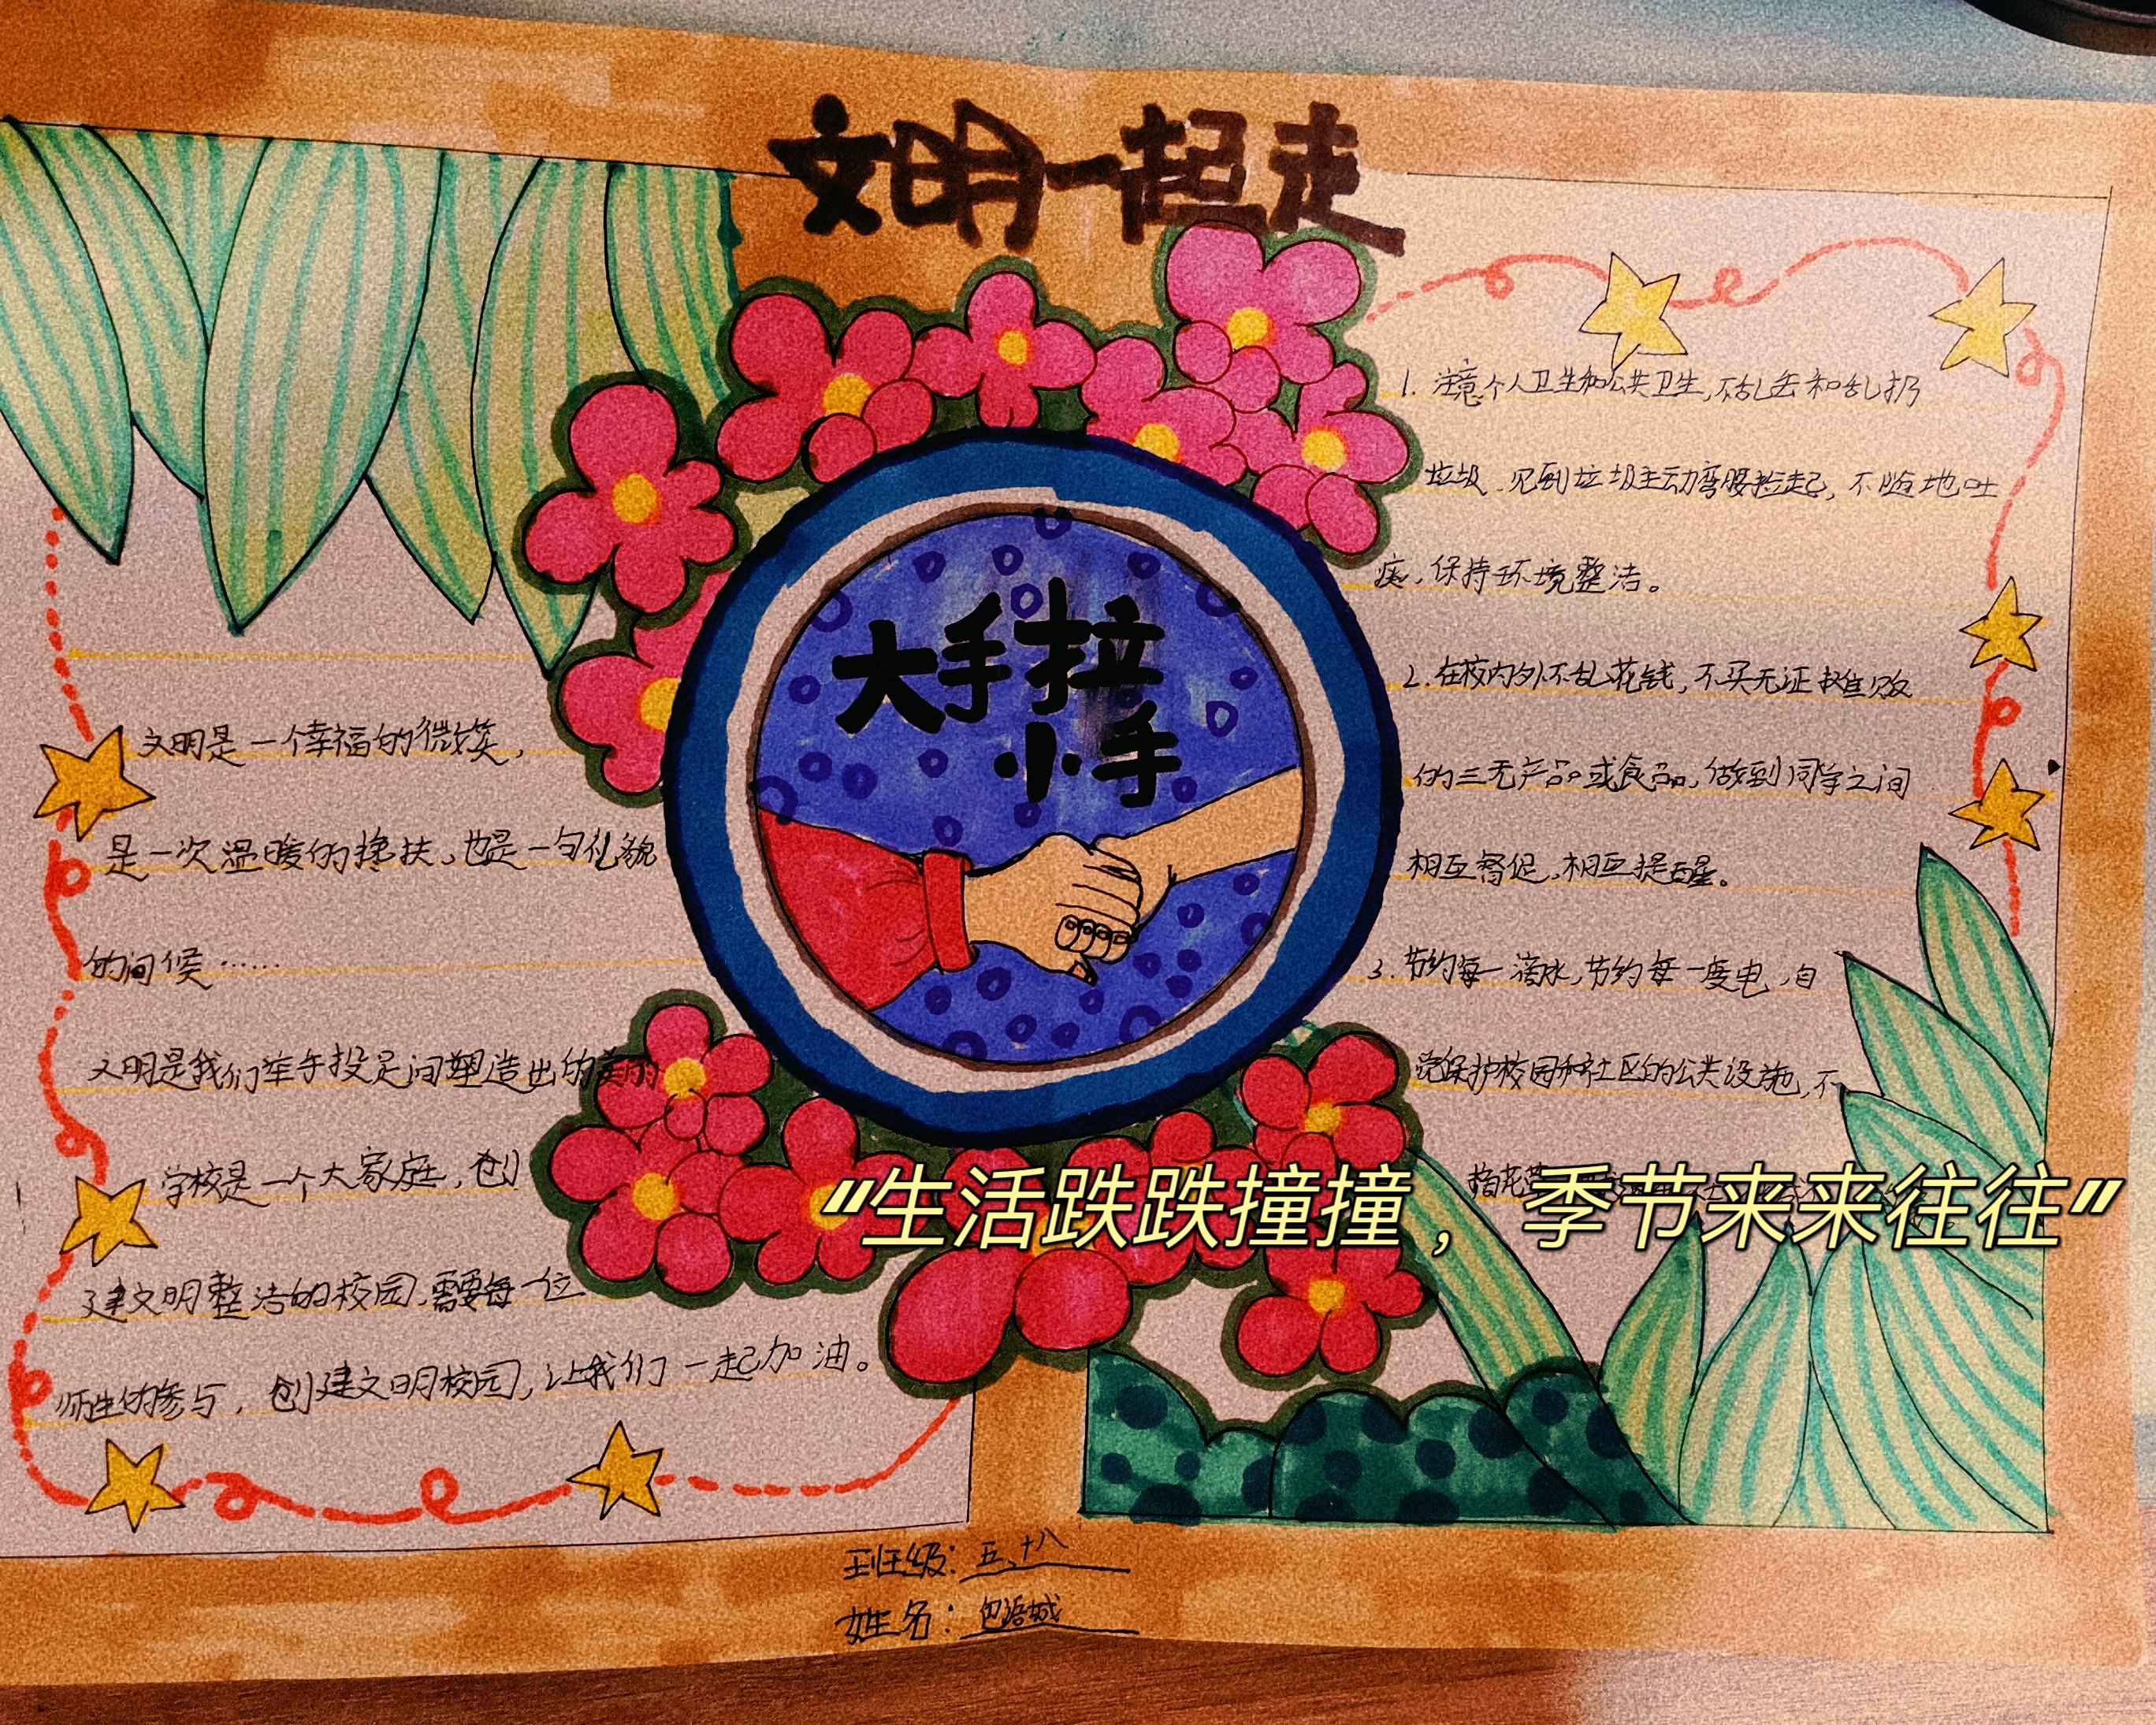 文明一起走
大手拉
小手
文明是一个幸福的微笑，
是一次温暖的搀扶，也是一句礼貌
的问候……
文明是我们举手投足间塑造出的美的
学校是一个大家庭，创
建文明整洁的校园，需要每一位
师生的参与，创建文明校园，让我们一起加油。
1. 注意个人卫生和公共卫生，不乱丢和乱扔
垃圾，见到垃圾主动弯腰捡起，不随地吐
痰，保持环境整洁。
2. 在校内外不乱花钱，不买无证摊贩
的三无产品或食品，做到同学之间
相互督促，相互提醒。
3. 节约每一滴水，节约每一度电，自
觉保护校园和社区的公共设施，不
摘花
“生活跌跌撞撞，季节来来往往”
班级：五、十八
姓名：